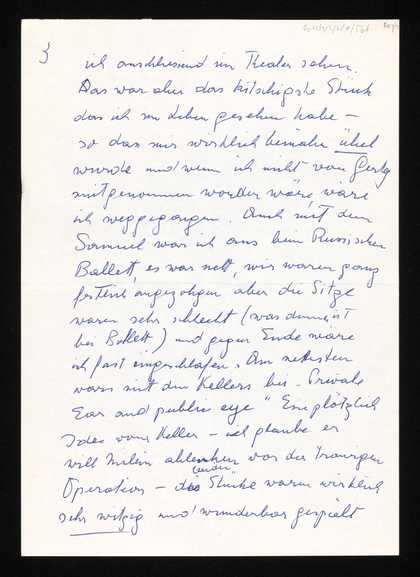 3
ich anschliessend im Theater sehen.
Das war aber das kitschigste Stück
das ich im Leben gesehen habe –
so dass mir wirklich beinahe übel
wurde und wenn ich nicht von
mitgenommen worden wäre, wäre
ich weggegangen. Auch mit dem
Samuel war ich aus beim Russischen
Ballett, es war nett, wir waren ganz
festlich angezogen aber die Sitze
waren sehr schlecht (was dumm ist
bei Ballett) und gegen Ende wäre
ich fast eingeschlafen. Am nettesten
wars mit den Kellers bei "Private
Ear and public eye" Eine plötzlich
Idee vom Keller – ich glaube er
will ablenken von der traurigen
Operation – die beiden Stücke waren wirklich
sehr witzig und wunderbar gespielt